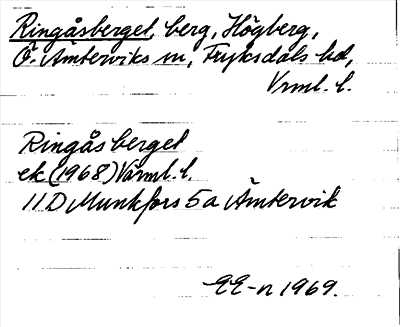 Ringåsberget, berg, Högberg,
Ö. Ämterviks sn, Fryksdals hd,
Vrml. l.
Ringåsberget
ek (1968) Värml. l.
11D Munkfors 5a Ämtervik
EE-n 1969.